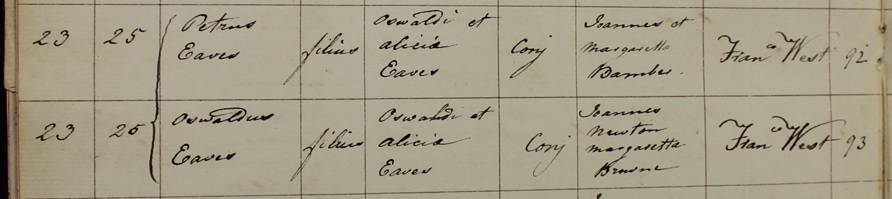 23 25 Petrus Eaves filius Oswaldi et alicia Eaves Conj Joannes et margaretta Bamber. Fran^co West 92
23 25 Oswaldus Eaves filius Oswaldi et alicia Eaves Conj Joannes Newton margaretta Fran^co West 93